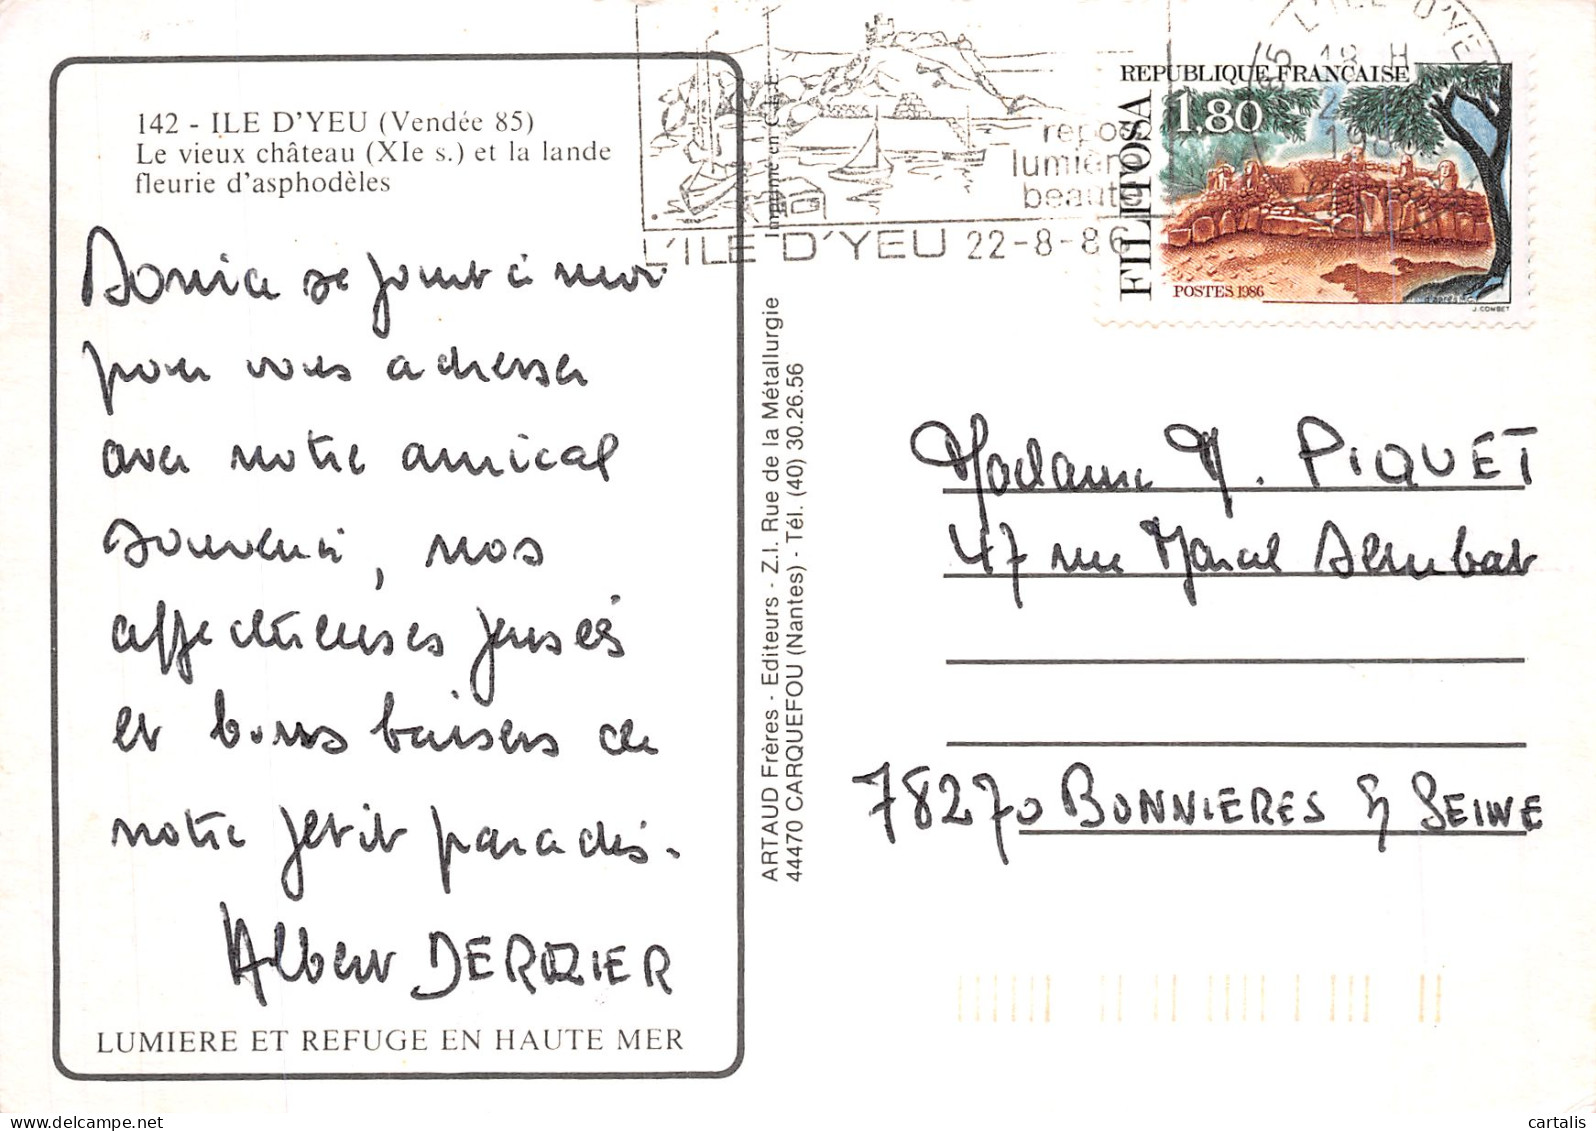 142 - ILE D'YEU (Vendée 85)
Le vieux château (XIe s.) et la lande
fleurie d'asphodèles
Sonia se joint à moi
pour vous adresser
avec notre amical
souvenir, nos
affectueuses pensées
et bons baisers de
notre petit paradis.
Albert DEROZIER
LUMIERE ET REFUGE EN HAUTE MER
Imprimé en C.E.E.
ARTAUD Frères - Editeurs - Z.I. Rue de la Métallurgie
44470 CARQUEFOU (Nantes) - Tél. (40) 30.26.56
repos
lumière
beauté
L'ILE D'YEU 22-8-86
85 L'ILE D'YEU
18 H
REPUBLIQUE FRANÇAISE
1,80
FILITOSA
POSTES 1986
J. COMBET
Madame M. PIQUET
47 rue Marcel Sembat
78270 BONNIERES S/ SEINE
cartalis